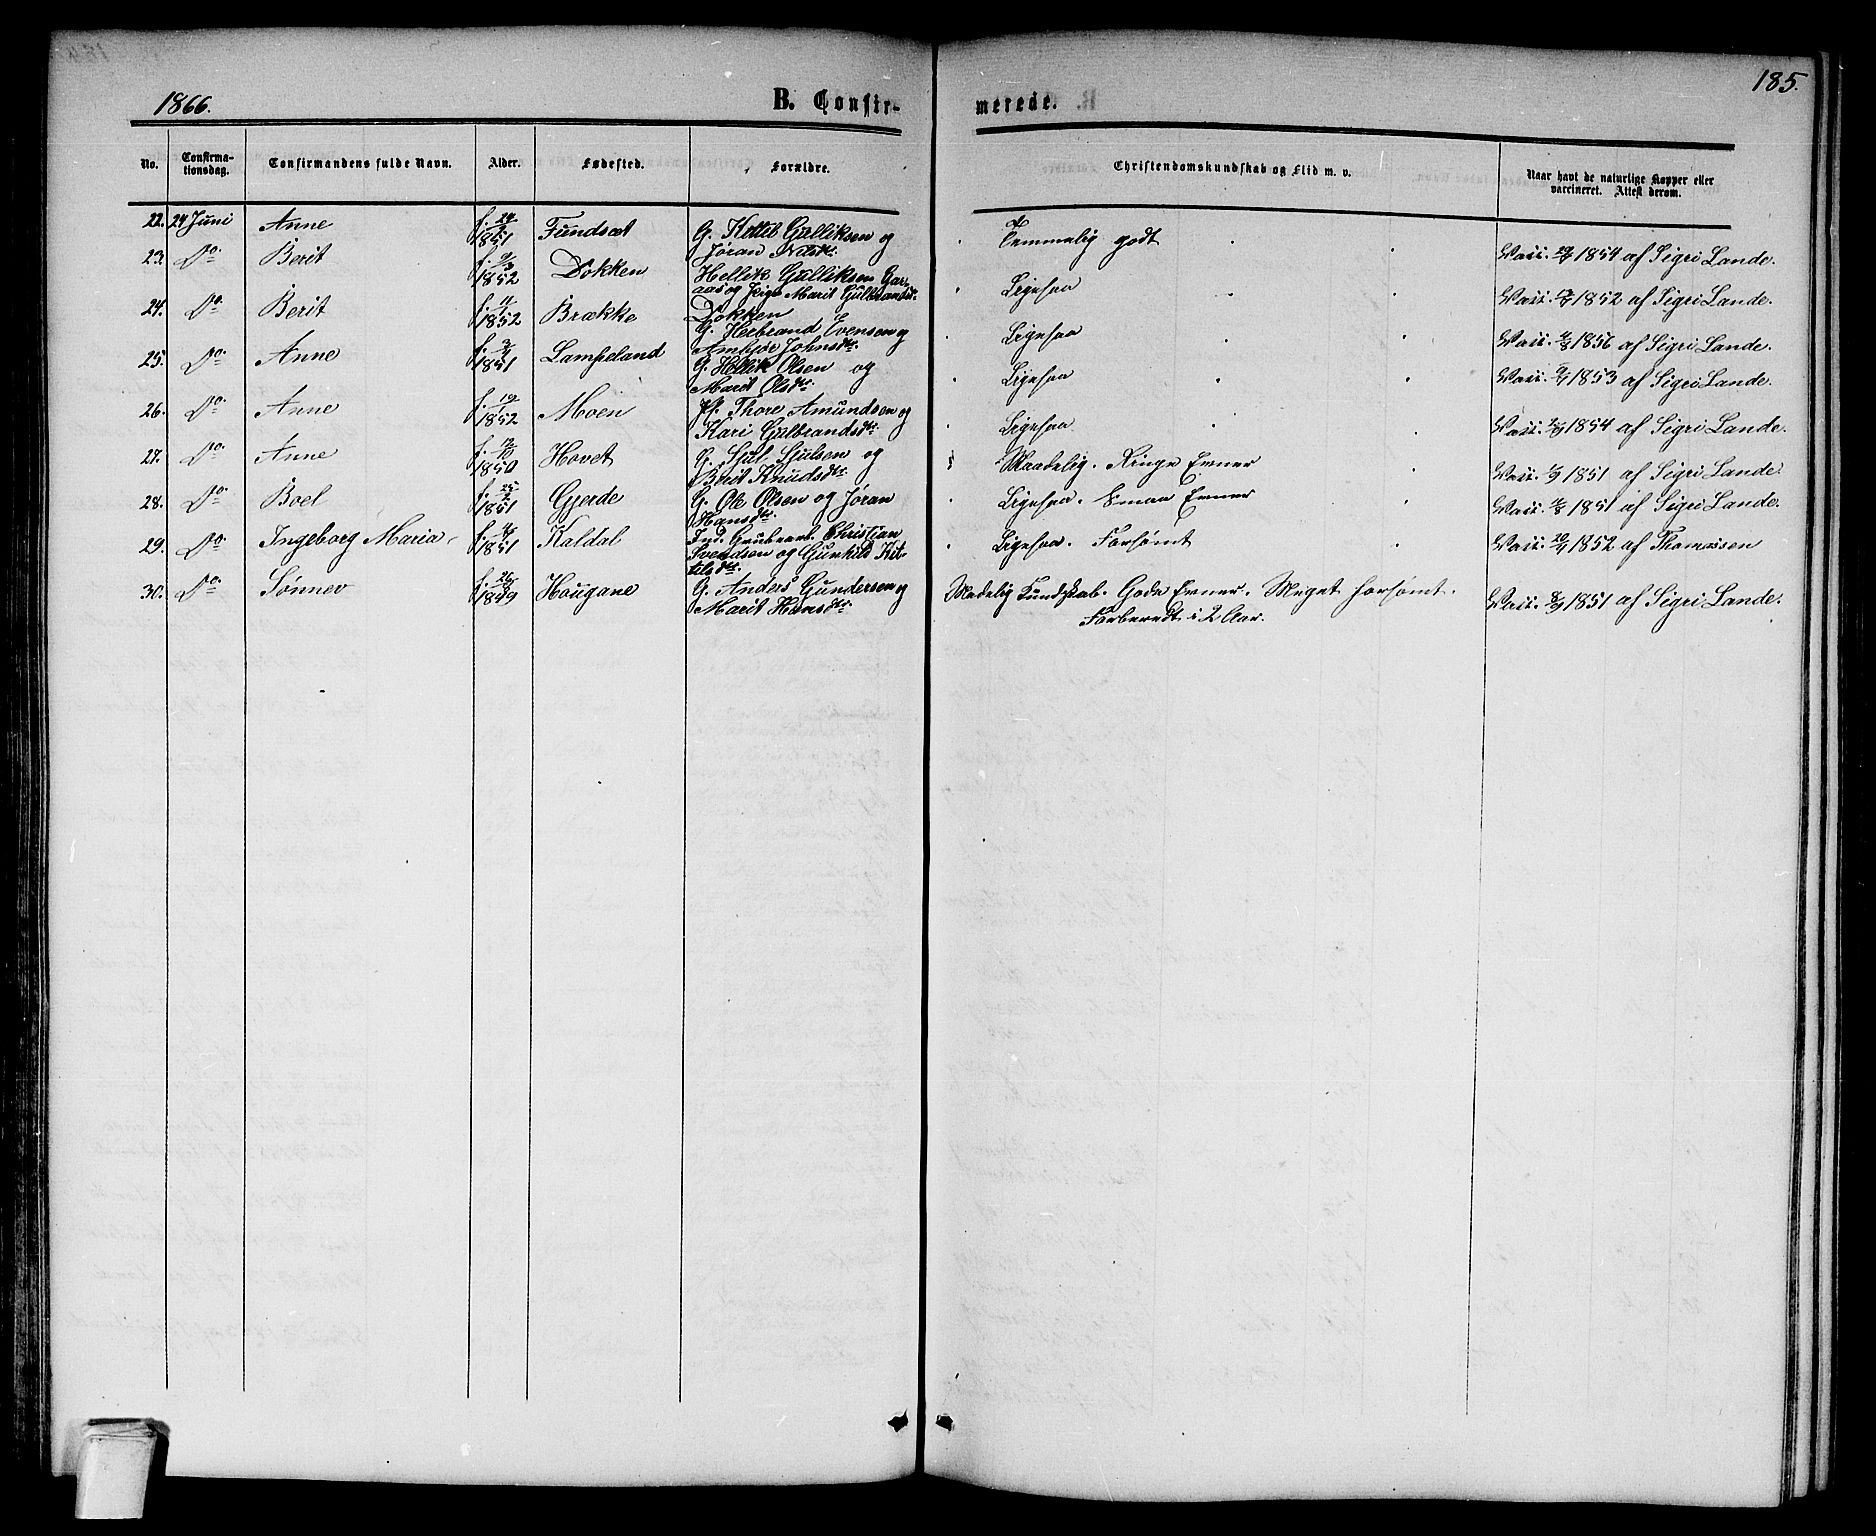 1866.
B. Confir-
merede.
185.
No.
Confirma-
tionsdag.
Confirmandens fulde Navn.
Alder.
Fødested.
Forældre.
Christendomskundskab og Flid m. v.
Naar havt de naturlige Kopper eller
vaccineret. Attest derom.
22. 24 Juni Anne f. 1851 Fundsæt G. Kittil Gulliksen og
Jøran Nilsdtr. Temmelig godt Vacc. 1854 af Sigri Lande.
23. Do Berit f. 9/3 1852 Dokken Hellik Gulliksen Gar-
aas og Pige Marit Gulbrandsd.
Dokken Ligesaa Vacc. 1852 af Sigri Lande.
24. Do Berit f. 1852 Brække G. Herbrand Evensen og
Ambjør Johnsdtr. Ligesaa Vacc. 1856 af Sigri Lande.
25. Do Anne f. 1851 Lampeland G. Hellik Olsen og
Marit Olsdtr. Ligesaa Vacc. 1853 af Sigri Lande.
26. Do Anne f. 1852 Moen Thore Amundsen og
Kari Gulbrandsdtr. Ligesaa Vacc. 1854 af Sigri Lande.
27. Do Anne f. 12/10 1850 Hovet G. Sjul Sjulsen og
Berit Knudsdtr. Maadelig. Ringe Evner Vacc. 1851 af Sigri Lande.
28. Do Boel f. 1851 Gjerde G. Ole Olsen og Jøran
Hansdtr. Ligesaa. Smaa Evner Vacc. 1851 af Sigri Lande.
29. Do Ingeborg Maria f. 1851 Kaldal Ind. Grubearb. Christian
Svendsen og Gunhild Kit-
telsdtr. Ligesaa. Forsømt Vacc. 1852 af Thomassen
30. Do Sønnev f. 1849 Hougane G. Anders Gundersen og
Marit Hansdtr. Madelig Kundskab. Gode Evner. Meget forsømt.
Forberedt i 2 Aar. Vacc. 1851 af Sigri Lande.